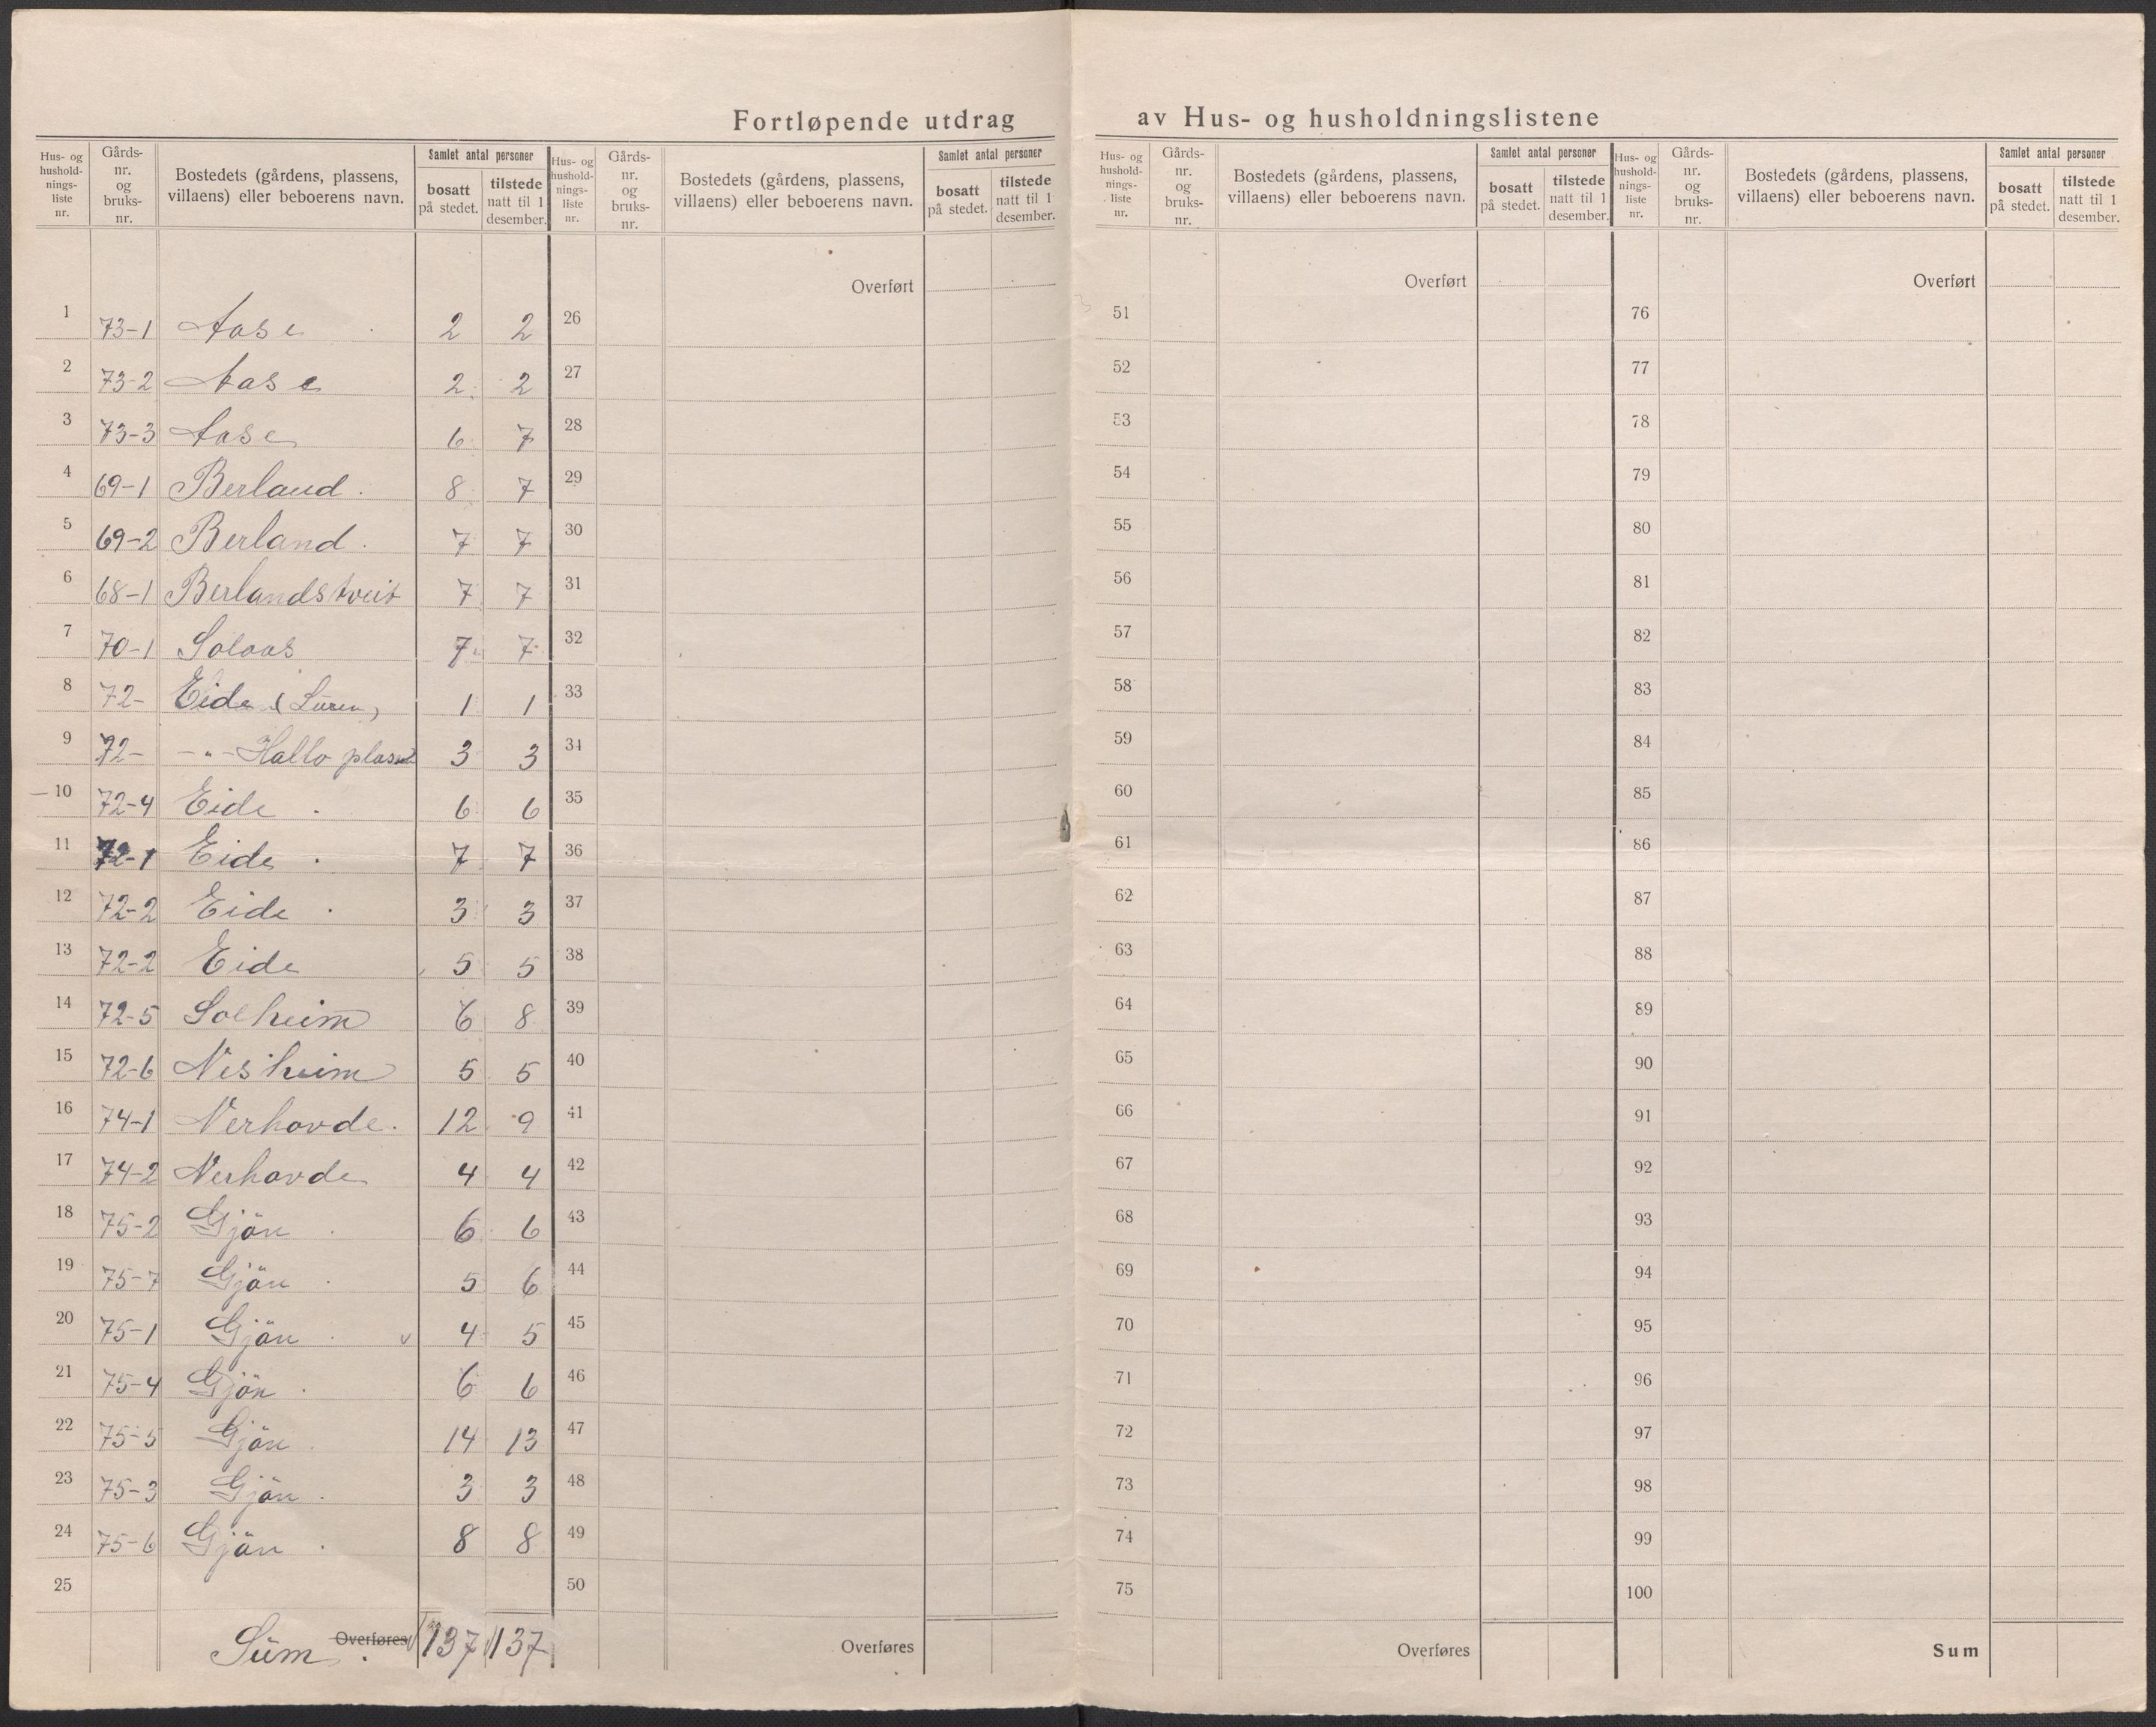 Fortløpende utdrag av Hus- og husholdningslistene
Hus- og hushold-nings-liste nr. Gårds-nr. og bruks-nr. Bostedets (gårdens, plassens, villaens) eller beboerens navn. Samlet antal personer bosatt på stedet. tilstede natt til 1 desember.
1 73-1 Aase 2 2
2 73-2 Aase 2 2
3 73-3 Aase 6 7
4 69-1 Berland. 8 7
5 69-2 Berland. 7 7
6 68-1 Berlandstveit 7 7
7 70-1 Solaas 7 7
8 72- Eide (Suren) 1 1
9 72- -"- Hallo plass 3 3
10 72-4 Eide 6 6
11 72-1 Eide 7 7
12 72-2 Eide 3 3
13 72-2 Eide 5 5
14 72-5 Solheim 6 8
15 72-6 Nesheim 5 5
16 74-1 Nerhovde. 12 9
17 74-2 Nerhovde 4 4
18 75-2 Gjön 6 6
19 75-7 Gjön 5 6
20 75-1 Gjön v 4 5
21 75-4 Gjön 6 6
22 75-5 Gjön 14 13
23 75-3 Gjön 3 3
24 75-6 Gjön 8 8
25
Sum. Overføres 137 137
Hus- og hushold-nings-liste nr. Gårds-nr. og bruks-nr. Bostedets (gårdens, plassens, villaens) eller beboerens navn. Samlet antal personer bosatt på stedet. tilstede natt til 1 desember.
Overført
26
27
28
29
30
31
32
33
34
35
36
37
38
39
40
41
42
43
44
45
46
47
48
49
50
Overføres
Hus- og hushold-nings-liste nr. Gårds-nr. og bruks-nr. Bostedets (gårdens, plassens, villaens) eller beboerens navn. Samlet antal personer bosatt på stedet. tilstede natt til 1 desember.
Overført
51
52
53
54
55
56
57
58
59
60
61
62
63
64
65
66
67
68
69
70
71
72
73
74
75
Overføres
Hus- og hushold-nings-liste nr. Gårds-nr. og bruks-nr. Bostedets (gårdens, plassens, villaens) eller beboerens navn. Samlet antal personer bosatt på stedet. tilstede natt til 1 desember.
Overført
76
77
78
79
80
81
82
83
84
85
86
87
88
89
90
91
92
93
94
95
96
97
98
99
100
Sum